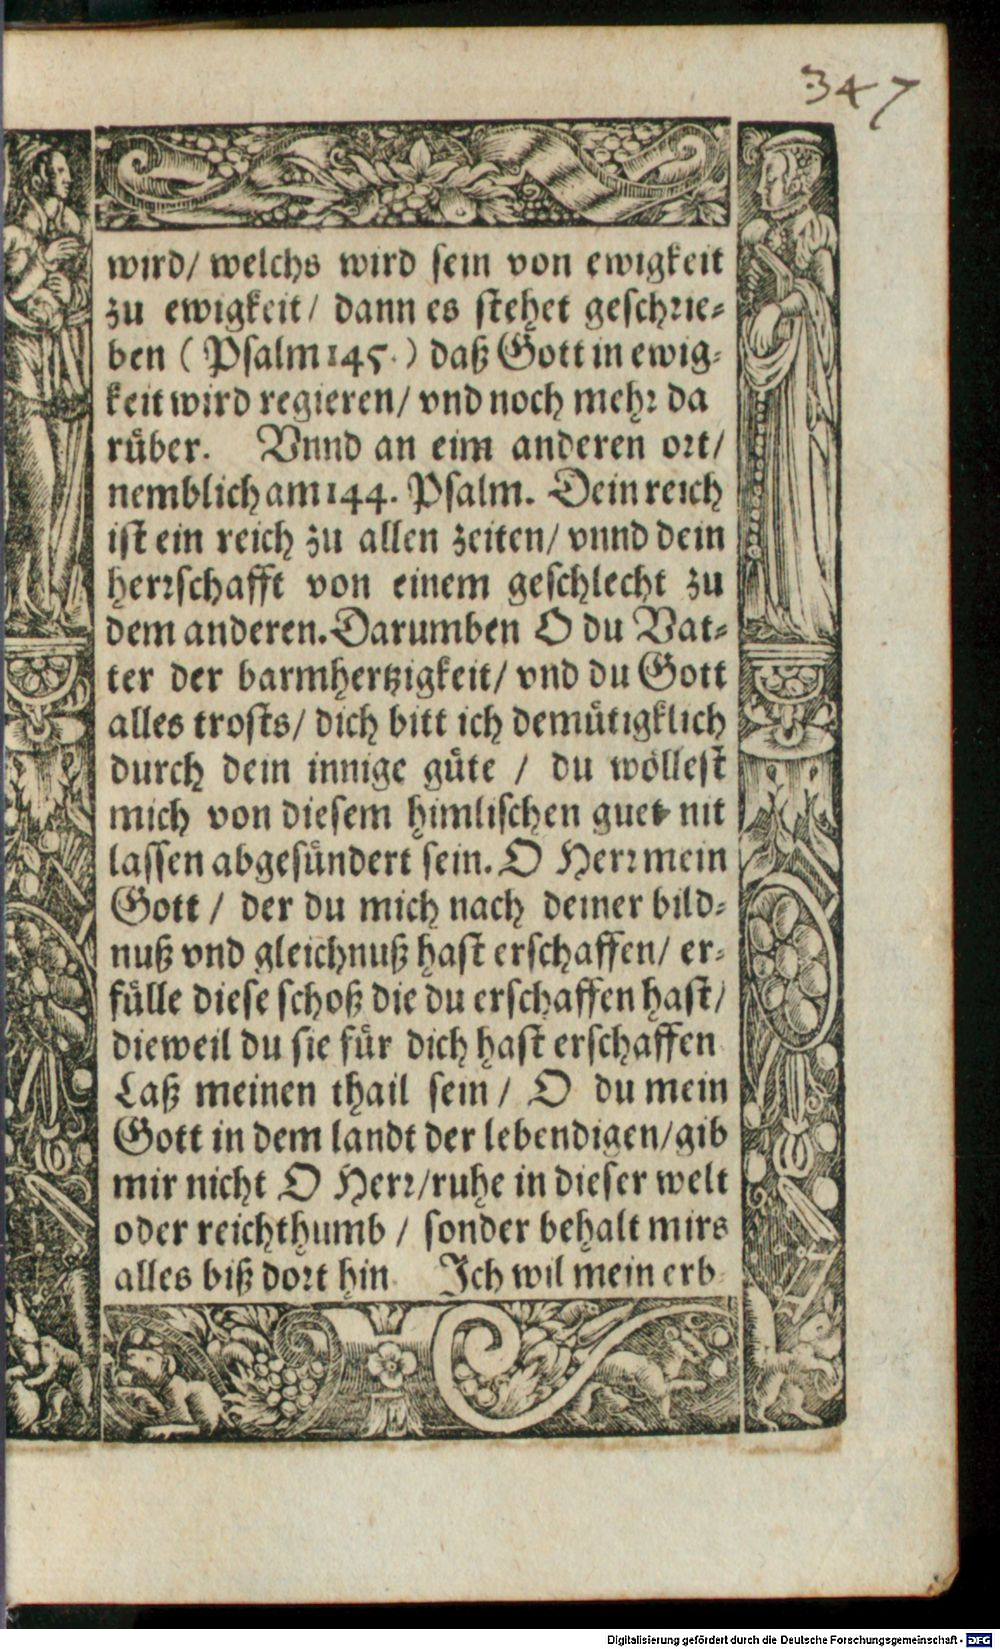 347
wird/ welchs wird sein von ewigkeit
zu ewigkeit/ dann es stehet geschrie⸗
ben (Psalm 145.) daß Gott in ewig⸗
keit wird regieren/ vnd noch mehr da
rüber. Vnnd an eim anderen ort/
nemblich am 144. Psalm. Dein reich
ist ein reich zu allen zeiten/ vnnd dein
herrschafft von einem geschlecht zu
dem anderen. Darumben O du Vat⸗
ter der barmhertzigkeit/ vnd du Gott
alles trosts/ dich bitt ich demütigklich
durch dein innige güte / du wöllest
mich von diesem himlischen guet nit
lassen abgesündert sein. O Herr mein
Gott / der du mich nach deiner bild⸗
nuß vnd gleichnuß hast erschaffen/ er⸗
fülle diese schoß die du erschaffen hast/
dieweil du sie für dich hast erschaffen
Laß meinen thail sein / O du mein
Gott in dem landt der lebendigen/gib
mir nicht O Herr/ruhe in dieser welt
oder reichthumb / sonder behalt mirs
alles biß dort hin. Ich wil mein erb
Digitalisierung gefördert durch die Deutsche Forschungsgemeinschaft - DFG